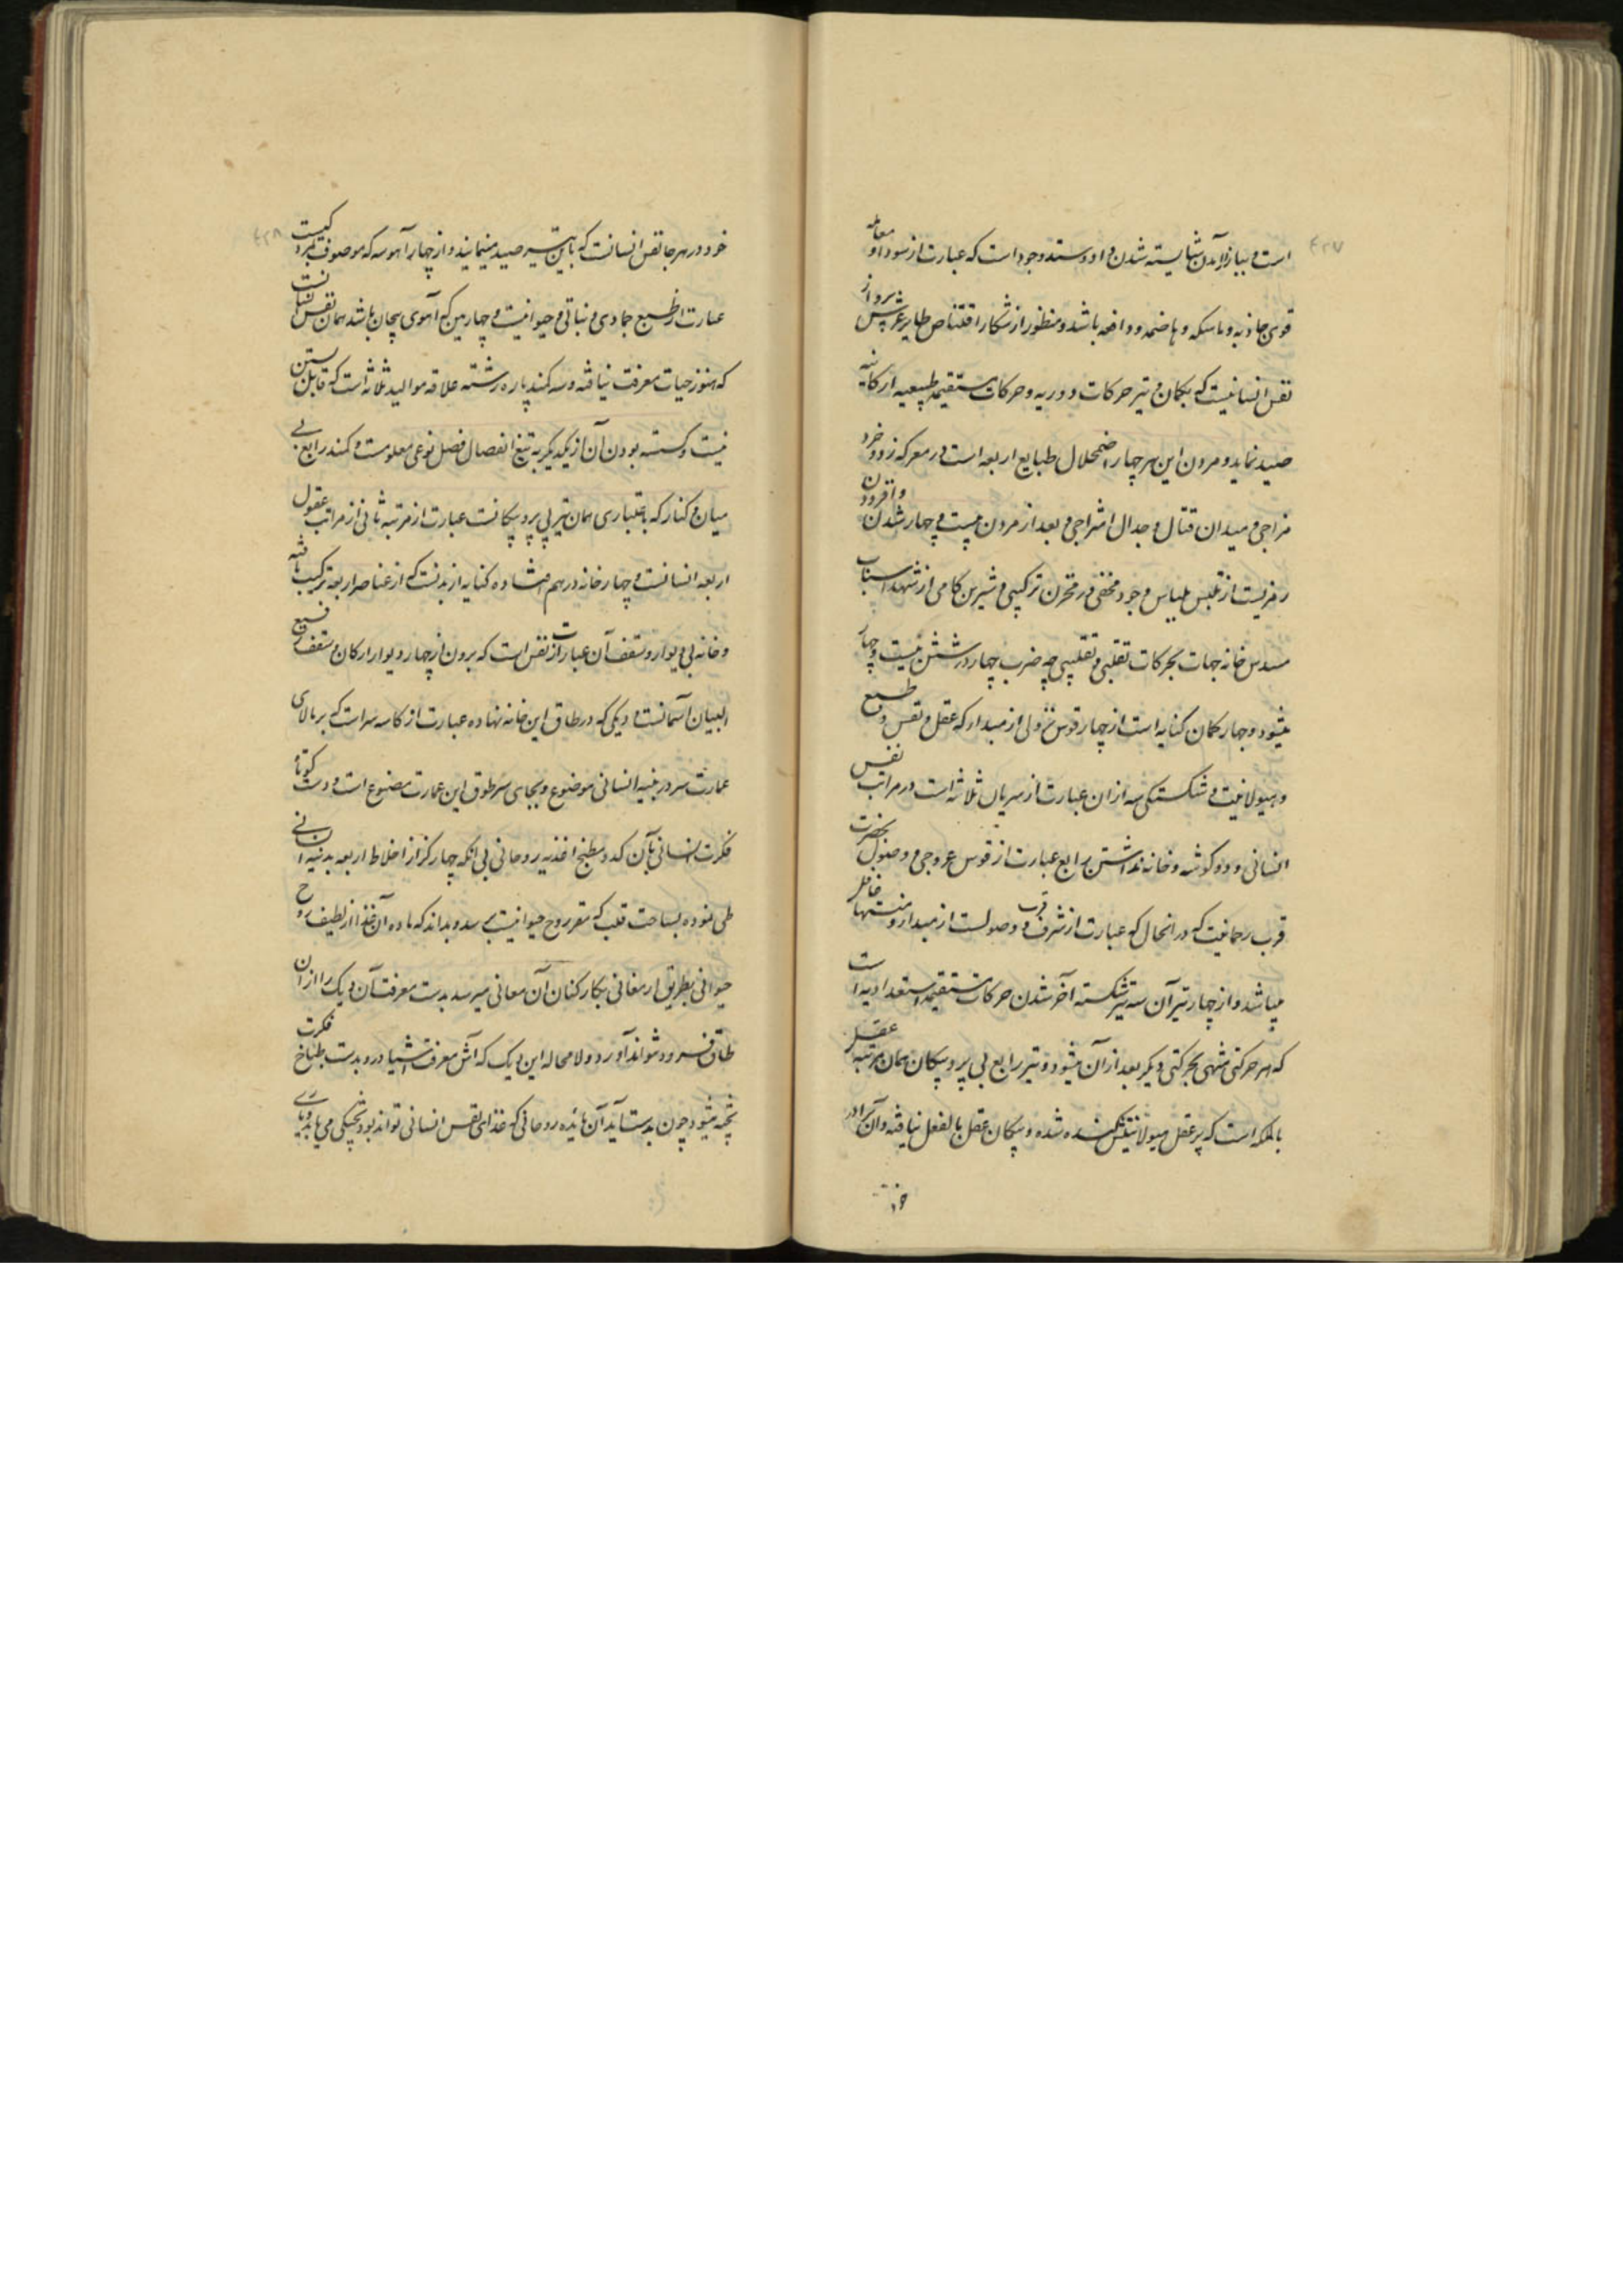 ۴۲۷
است و ببازار آمدن شایسته شدن داد و ستد وجود است که عبارت از سودا و معامله
قوی جاذبه و ماسکه و هاضمه و دافعه باشد و منظور از شکار اقتناص طایر عرش پرواز
نفس انسانیست که بکمان و تیر حرکات دوریه و حرکات مستقیمه طبیعیه ارکانیه
صید نماید و مردن این هر چهار اضمحلال طبایع اربعه است در معرکه زد و خورد
مزاجی و میدان قتال و جدال امتزاجی و بعد از مردن بیست و چهار شدن و افزودن
رمزیست از تلبس بلباس وجود مخفی در مخزن ترکیبی و شیرین کامی از شهد اسباب
مسدس خانه جهات بحرکات تقلبی و تقلیبی چه ضرب چهار در شش بیست و چهار
میشود و چهار کمان کنایه است از چهار قوس نزولی از مبدا که عقل و نفس و طبع
و هیولانیت و شکستگی سه از ان عبارت از سریان ثلاثه است در مراتب نفس
انسانی و دو گوشه و خانه نداشتن رابع عبارت از قوس عروجی و وصول بحضرت
قرب رحمانیت که در انحال که عبارت از شرف قرب و وصولست از مبدا و منتهی
میباشد و از چهار تیر آن سه تیر شکسته آخر شدن حرکات مستقیمه استعدادیه است
که هر حرکتی منتهی بحرکتی دیگر بعد از آن میشود و تیر رابع بی پر و پیکان همان مرتبه عقل
بالملکه است که پر عقل هیولانیتش کنده شده و پیکان عقل بالفعل نیافته و آن
۴۲۸
خود در هر جا نفس انسانست که باین تیر صید مینمایند و از چهار آهو سه که موصوف
عبارت از طبع جمادی و نباتی و حیوانیست و چهارمین که آهوی بیجان باشد همان نفس انسانست
که هنوز حیات معرفت نیافته و سه کمند پاره رشته علاقه موالید ثلاثه است که قابل بستن
نیست و گسسته بودن آن از یکدیگر به تیغ انفصال فصل نوعی معلومست و کمند رابع بی
میان و کنار که باعتباری همان تیر بی پر و پیکانست عبارت از مرتبه ثانی از مراتب عقول
اربعه انسانست و چهار خانه در هم افتاده کنایه از بدنست که از عناصر اربعه ترکیب یافته
و خانه بی دیوار و سقف آن عبارت از نفس است که برون از چهار دیوار ارکان و سقف رفیع
البنیان آسمانست و دیگی که در طاق این خانه نهاده عبارت از کاسه سر است که بر بالای
عمارت سر در بنیه انسانی موضوع و بجای سر طوق این عمارت مصنوع است و دست کوتاه
فکرت انسانی بآن کدو مطبخ اغذیه روحانی بی انکه چهار گز از اخلاط اربعه بدنیه انسانی
طی نموده بساحت قلب که مقر روح حیوانیست برسد و بداند که ماده آن غذا از لطیف روح
حیوانی بطریق ارمغانی بکار کنان آن معانی میرسد بدست معرفت آن دیک را از آن
طاق فرود نتواند آورد و لا محاله این دیک که آش معرفت اشیا در و بدست طباخ فکرت
پخته میشود چون بدست آید آن مائده روحانی که غذای نفس انسانی تواند بود پختگی می یابد